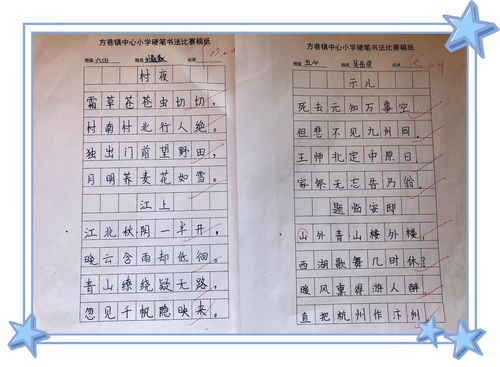 方巷镇中心小学硬笔书法比赛稿纸
班级 六(1) 姓名 成绩
村夜
霜草苍苍虫切切，
村南村北行人绝。
独出门前望野田，
月明荞麦花如雪。
江上
江北秋阴一半开，
晚云含雨却低徊。
青山缭绕疑无路，
忽见千帆隐映来。
方巷镇中心小学硬笔书法比赛稿纸
班级 姓名 成绩
示儿
死去元知万事空，
但悲不见九州同。
王师北定中原日，
家祭无忘告乃翁。
题临安邸
山外青山楼外楼，
西湖歌舞几时休？
暖风熏得游人醉，
直把杭州作汴州。